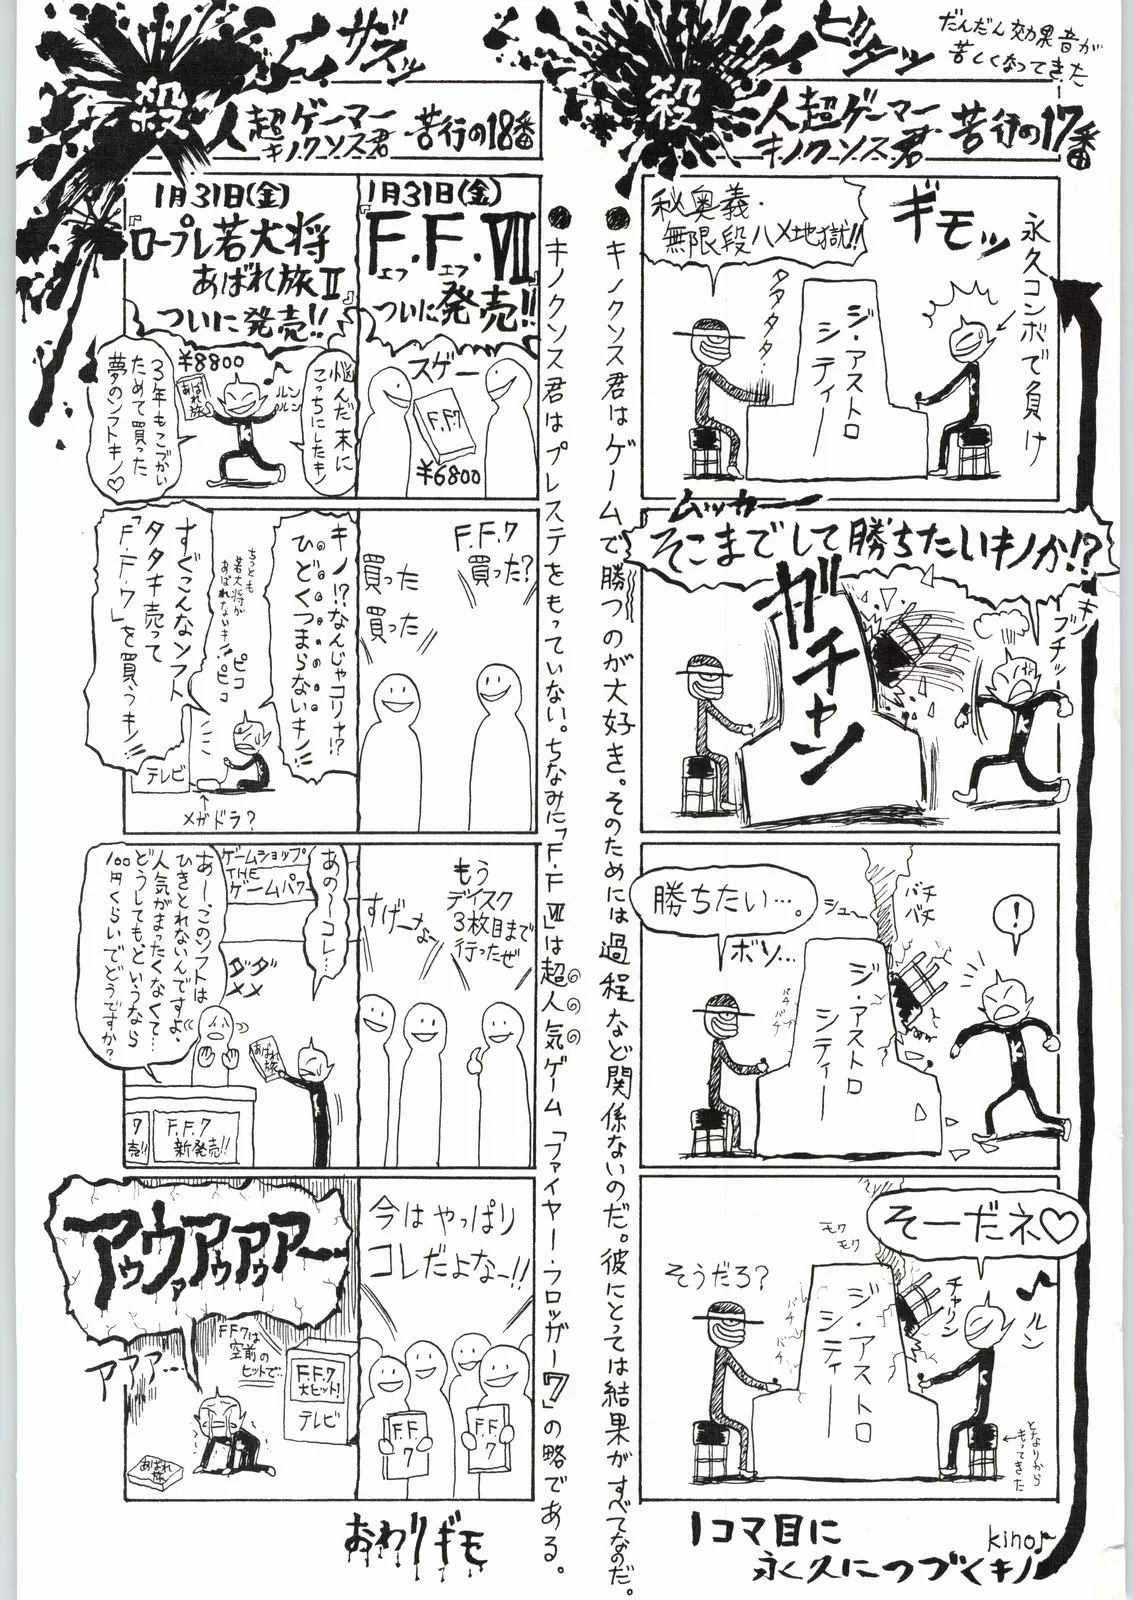 だんだん効果音が
苦しくなってきた
ビシャッ
殺
人超ゲーマー
キノクソス君
苦行の17番
永久コンボで負け
ギモッ
秘奥義・
無限段ハメ地獄!!
タタタタタ…
ジ・アストロ
シティー
ムッカー
そこまでして勝ちたいキノか!?
キノ
ブチッ
ガチャン
勝ちたい…。
ボソ…
シュ〜
バチ
バチ
バチ
バチ
!
ジ・アストロ
シティー
そーだネ♡
モク
モク
そうだろ?
チャリン
ルン
バチ
バチ
ジ・アストロ
シティー
となりから
もってきた
1コマ目に
永久につづくキノ
kino
●キノクソス君はゲームで勝つのが大好き。そのためには過程など関係ないのだ。彼にとっては結果がすべてなのだ。
ザズッ
殺
人超ゲーマー
キノクソス君
苦行の18番
1月31日(金)
『F.F.Ⅶ』
エフ エフ
ついに発売!!
スゲー
F.F.7
¥6800
1月31日(金)
『ロープレ若大将
あばれ旅Ⅱ』
ついに発売!!
悩んだ末に
こっちにしたキノ
ルン
ルン
¥8800
あばれ
旅
3年もこづかい
ためて買った
夢のソフトキノ♡
F.F.7
買った?
買った
買った
キノ!?なんじゃコリャ!?
ひどくつまらないキノ!!
ちっとも
若大将が
あばれないキノ!!
ピコ
ピコ
すぐこんなソフト
タタキ売って
「F.F.7」を買うキノ!!
テレビ
メガドラ?
もう
ディスク
3枚目まで
行ったぜ
すげーなー
あの〜コレ…
ゲームショップ
THE
ゲームパワー
ダダ
メメ
あー、このソフトは
ひきとれないんですよ、
人気がまったくなくて…
どうしても、というなら
100円くらいでどうですか?
あばれ
旅
7
売!!
F.F.7
新発売!!
今はやっぱり
コレだよなー!!
F.F.
7
F.F.
7
アゥウアゥアゥアァー
アァァァ…
FF7は
空前の
ヒットで…
F.F.7
大ヒット!
テレビ
あばれ
旅
●キノクソス君はプレステをもっていない。ちなみに「F.F.Ⅶ」は超人気ゲーム「ファイヤー・フロッガー7」の略である。
おわりギモ